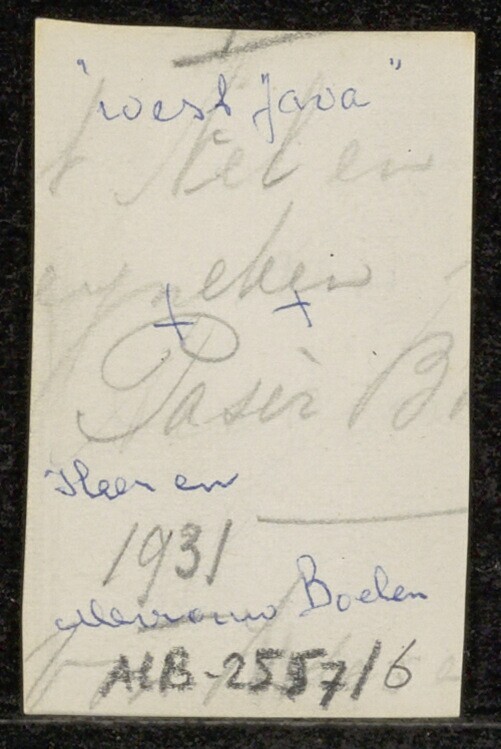 "West Java"
Het en
eken
+ +
Pasir B
Heer en
1931
Mevrouw Boelen
ALB-2557/6